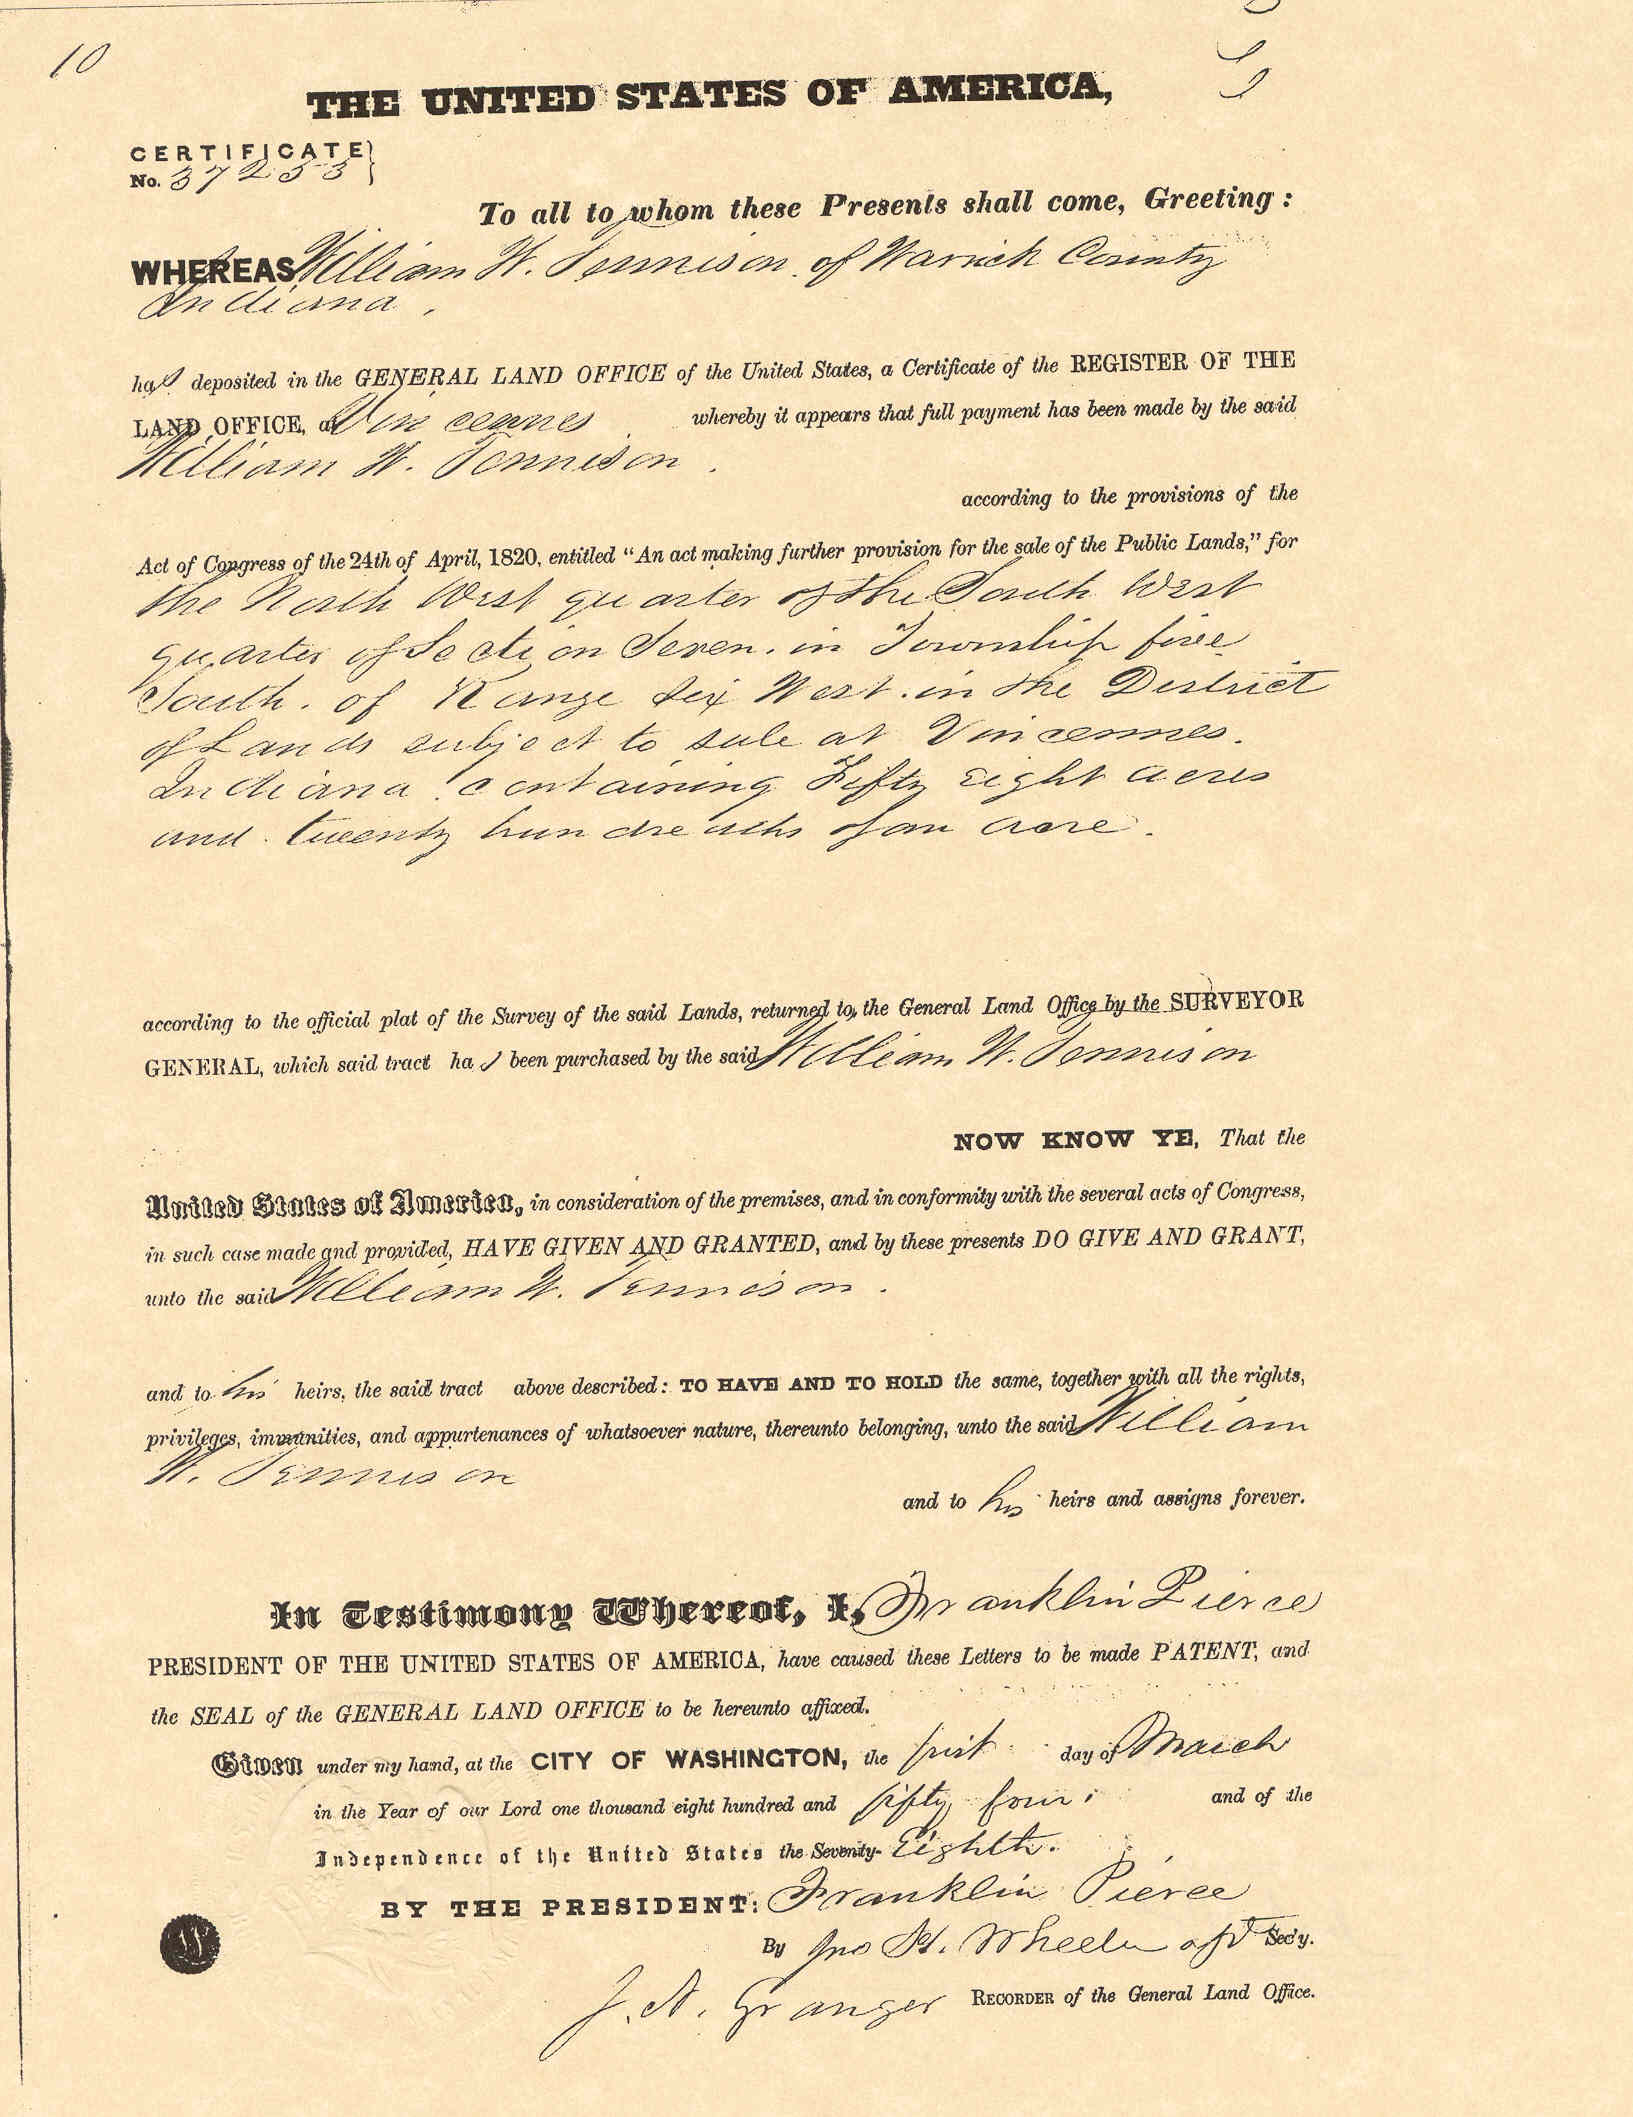 10
THE UNITED STATES OF AMERICA,
CERTIFICATE
No. 37253
To all to whom these Presents shall come, Greeting:
WHEREAS William W. Tennison of Warrick County
Indiana.
has deposited in the GENERAL LAND OFFICE of the United States, a Certificate of the REGISTER OF THE
LAND OFFICE, at Vincennes whereby it appears that full payment has been made by the said
William W. Tennison.
according to the provisions of the
Act of Congress of the 24th of April, 1820, entitled "An act making further provision for the sale of the Public Lands," for
the North West quarter of the South West
quarter of Section Seven. in Township five
South. of Range six West. in the District
of Lands subject to sale at Vincennes.
Indiana containing Fifty Eight acres
and twenty hundredths of an acre.
according to the official plat of the Survey of the said Lands, returned to the General Land Office by the SURVEYOR
GENERAL, which said tract has been purchased by the said William W. Tennison
NOW KNOW YE, That the
United States of America, in consideration of the premises, and in conformity with the several acts of Congress,
in such case made and provided, HAVE GIVEN AND GRANTED, and by these presents DO GIVE AND GRANT,
unto the said William W. Tennison.
and to his heirs, the said tract above described: TO HAVE AND TO HOLD the same, together with all the rights,
privileges, immunities, and appurtenances of whatsoever nature, thereunto belonging, unto the said William
W. Tennison
and to his heirs and assigns forever.
In Testimony Whereof, I, Franklin Pierce
PRESIDENT OF THE UNITED STATES OF AMERICA, have caused these Letters to be made PATENT, and
the SEAL of the GENERAL LAND OFFICE to be hereunto affixed.
Given under my hand, at the CITY OF WASHINGTON, the first day of March
in the Year of our Lord one thousand eight hundred and fifty four and of the
Independence of the United States the Seventy-Eighth.
BY THE PRESIDENT: Franklin Pierce
By Jno H. Wheeler asst Sec'y.
J. N. Granger RECORDER of the General Land Office.